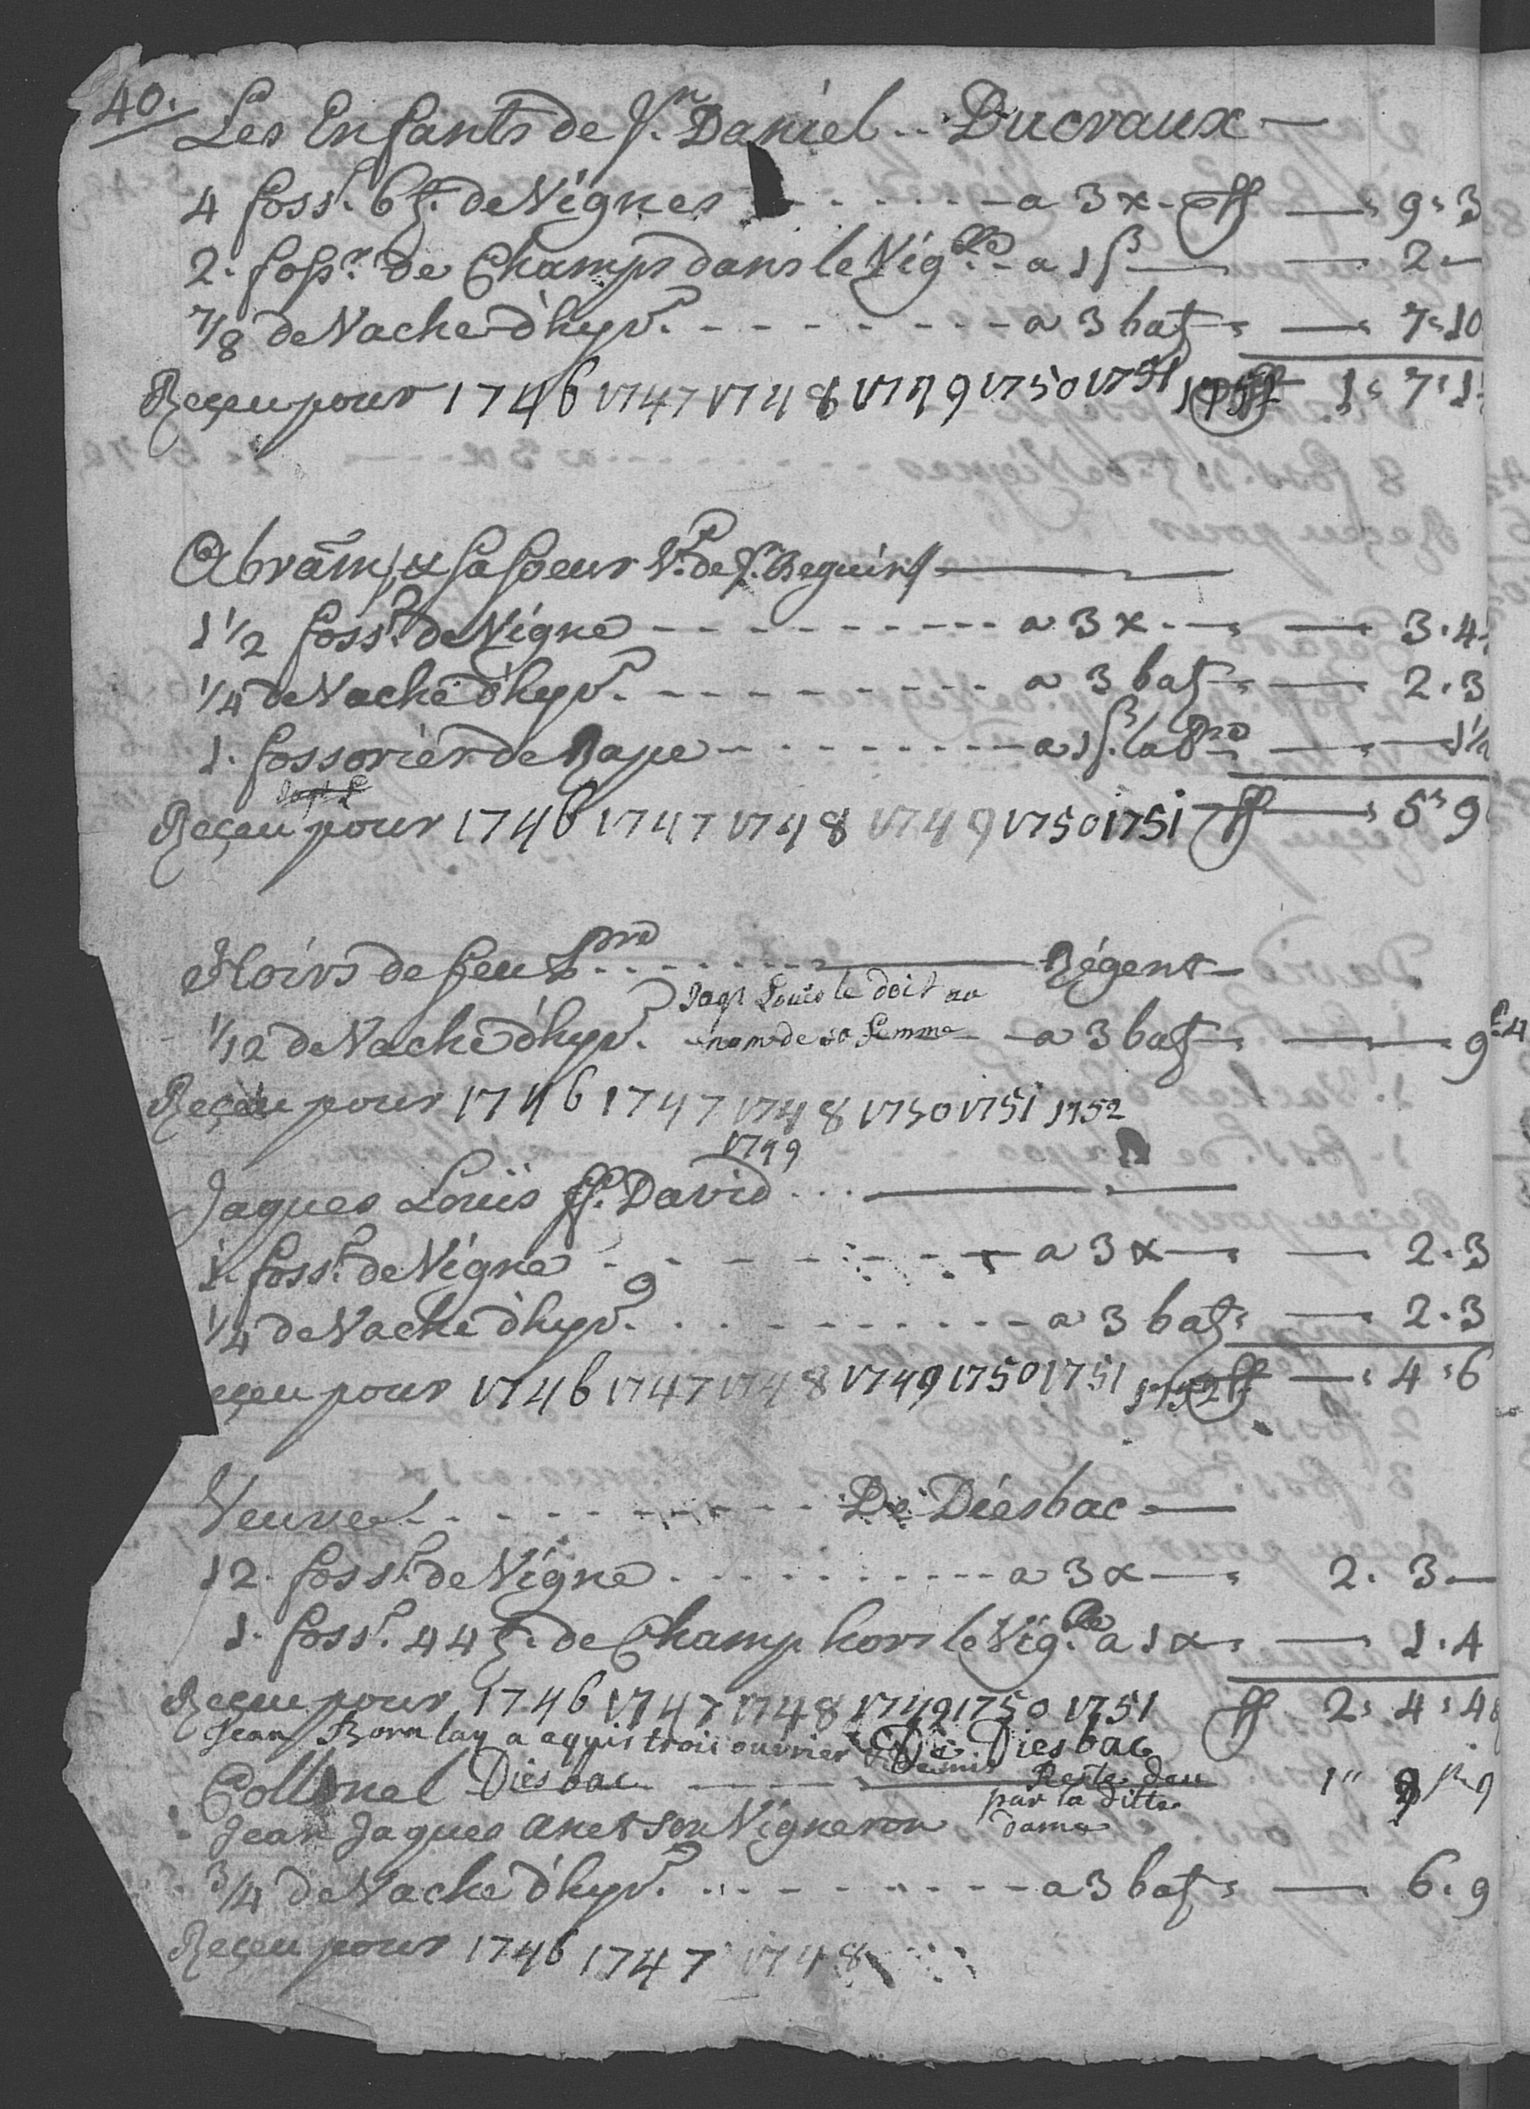 40.
Les Enfants de Jn. Daniel .. Ducraux —
4 foss.r 6 t. de Vignes - - - - - - a 3 x. ff — 9 " 3
2. foss.r de Champs dans le Vig.ble - a 1 ß — 2 -
7/8 de Vache d'hyv.r - - - - - - - - a 3 batz — 7 " 10
Reçeu pour 1746 1747 1748 1749 1750 1751 1752 ff 1 " 7 " 1
Abram, & sa soeur V.e de J. Reguin —
1 1/2 foss.r de Vigne - - - - - - - - - a 3 x. — 3 . 4
1/4 de Vache d'hyv.r - - - - - - - - a 3 batz — 2 . 3
1. fossorier de Rape - - - - - - - a 1 ß. la — 1 1/2
Reçeu pour 1746 1747 1748 1749 1750 1751 ff — 5 " 9
Hoirs de feu - - - - - Régent —
Jaqs Louis le doit au
1/12 de Vache d'hyv.r nom de sa femme - a 3 batz — 9
Reçeu pour 1746 1747 1748 1750 1751 1752
1749
Jaques Louïs ff. David . . . —
1. foss.r de Vigne - - - - - - - a 3 x — 2 . 3
1/4 de Vache d'hyv.r . . . . . . . . a 3 batz — 2 . 3
eçeu pour 1746 1747 1748 1749 1750 1751 1752 ff — 4 " 6
Veuve - - - - - - - - De Diesbac —
12. foss.r de Vigne . . . . . . . . a 3 x — 2 . 3 —
1. foss.r 44 t. de Champ hors le Vig.ble a 1 x — 1 . 4
Reçeu pour 1746 1747 1748 1749 1750 1751 ff 2 " 4 " 4
Jean Bornlay a aquis trois ouvrier & demis De Diesbac
Collonel Diesbac — Reste deu 1 " 9 9
par la ditte
Jean Jaques Anet son Vigneron dame
3/4 de Vache d'hyv.r . . - - - - - - a 3 batz — 6 . 9
Reçeu pour 1746 1747 1748